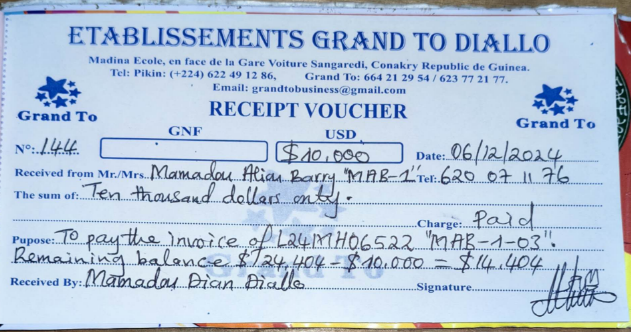 ETABLISSEMENTS GRAND TO DIALLO
Madina Ecole, en face de la Gare Voiture Sangaredi, Conakry Republic de Guinea.
Tel: Pikin: (+224) 622 49 12 86, Grand To: 664 21 29 54 / 623 77 21 77.
Email: grandtobusiness@gmail.com
Grand To
RECEIPT VOUCHER
Grand To
GNF USD
Nº: 144 $10,000 Date: 06/12/2024
Received from Mr./Mrs. Mamadou Alian Barry "MAB-1" Tel: 620 07 11 76
The sum of: Ten thousand dollars only.
Charge: Paid
Pupose: To pay the invoice of L24MH06522 "MAB-1-03".
Remaining balance $24,404 - $10,000 = $14,404
Grand To
Received By: Mamadou Dian Diallo Signature